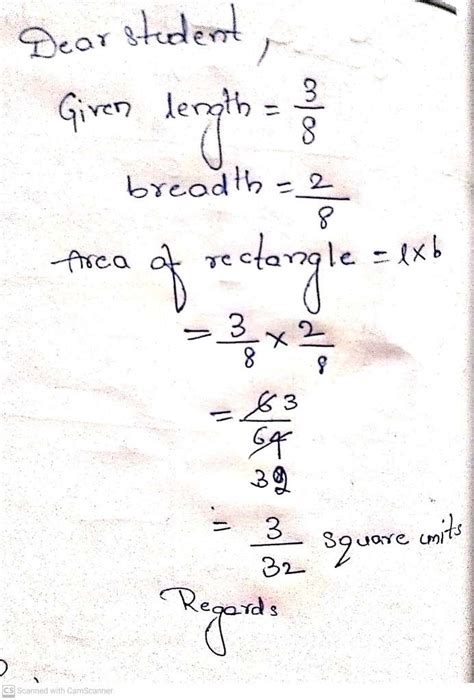 Dear student,
Given length = 3/8
breadth = 2/8
Area of rectangle = l×b
= 3/8 × 2/8
= 6̶ 3
6̶4̶
32
= 3/32 square units
Regards
CS Scanned with CamScanner